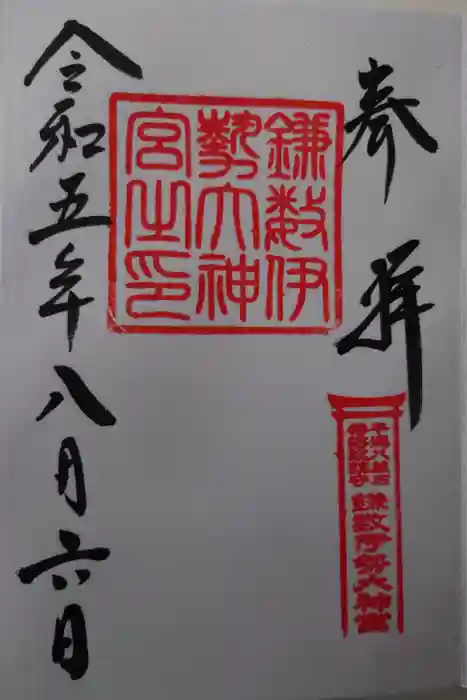 奉拝
鎌数伊
勢大神
宮之印
鎌数伊勢大神宮
令和五年八月六日